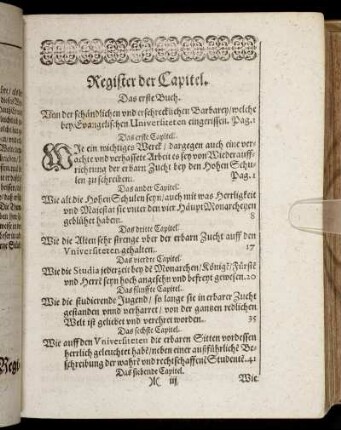 Register der Capitel.
Das erste Buch.
Von der schändlichen vnd erschrecklichen Barbarey/welche
bey Evangelischen Universiteten eingerissen. Pag.1
Das erste Capitel.
Wie ein wichtiges Werck/ dargegen auch eine ver-
achte vnd verhassete Arbeit es sey von Wiederauff-
richtung der erbarn Zucht bey den Hohen Schu-
len zu schreiben. Pag.1
Das ander Capitel.
Wie alt die Hohen Schulen seyn/ auch mit was Herrligkeit
vnd Maiestat sie vnter den vier Häupt Monarcheyen
geblühet haben. 8
Das dritte Capitel.
Wie die Alten sehr strenge vber der erbarn Zucht auff den
Vniversiteten gehalten. 17
Das vierdte Capitel.
Wie die Studia jederzeit bey dē Monarchen/ König?/ Fürstē
vnd Herrē seyn hoch angesehn vnd befreyt gewesen. 20
Das fünffte Capitel.
Wie die studierende Jugend/ so lange sie in erbarer Zucht
gestanden vnnd verharret/ von der gantzen redlichen
Welt ist geliebet vnd verehret worden. 35
Das sechste Capitel.
Wie auff den Vniversiteten die erbaren Sitten vordessen
herrlich geleuchtet habē/ neben einer außführlichē Be-
schreibung der wahrē vnd rechtschaffenē Studentē. 41
Das siebende Capitel.
iij Wie